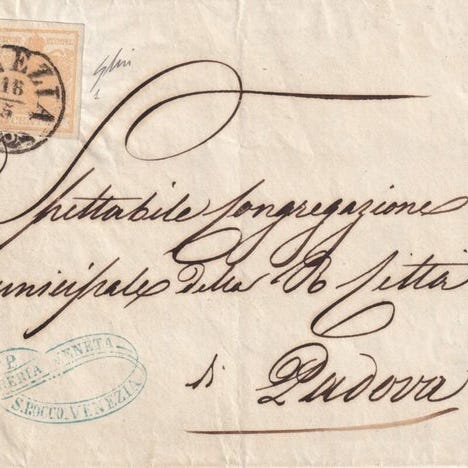 EZIA
16
5
Spettabile Congregazione
unicipale della R Città
di Padova
P.
RERIA VENETA
S. ROCCO VENEZIA